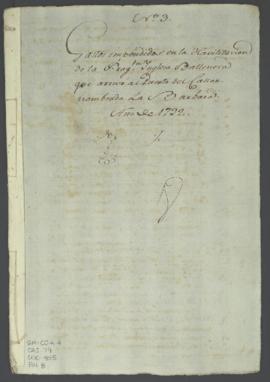 Nº 3.
Gastos impendidos en la Havilitacion
de la Fragta Ynglesa Ballenera
que arrivó al Puerto del Callao
nombrada La Barbara
Año de 1792.
GM-CO-A 4
CAJ. 79
DOC. 905
FH. 8